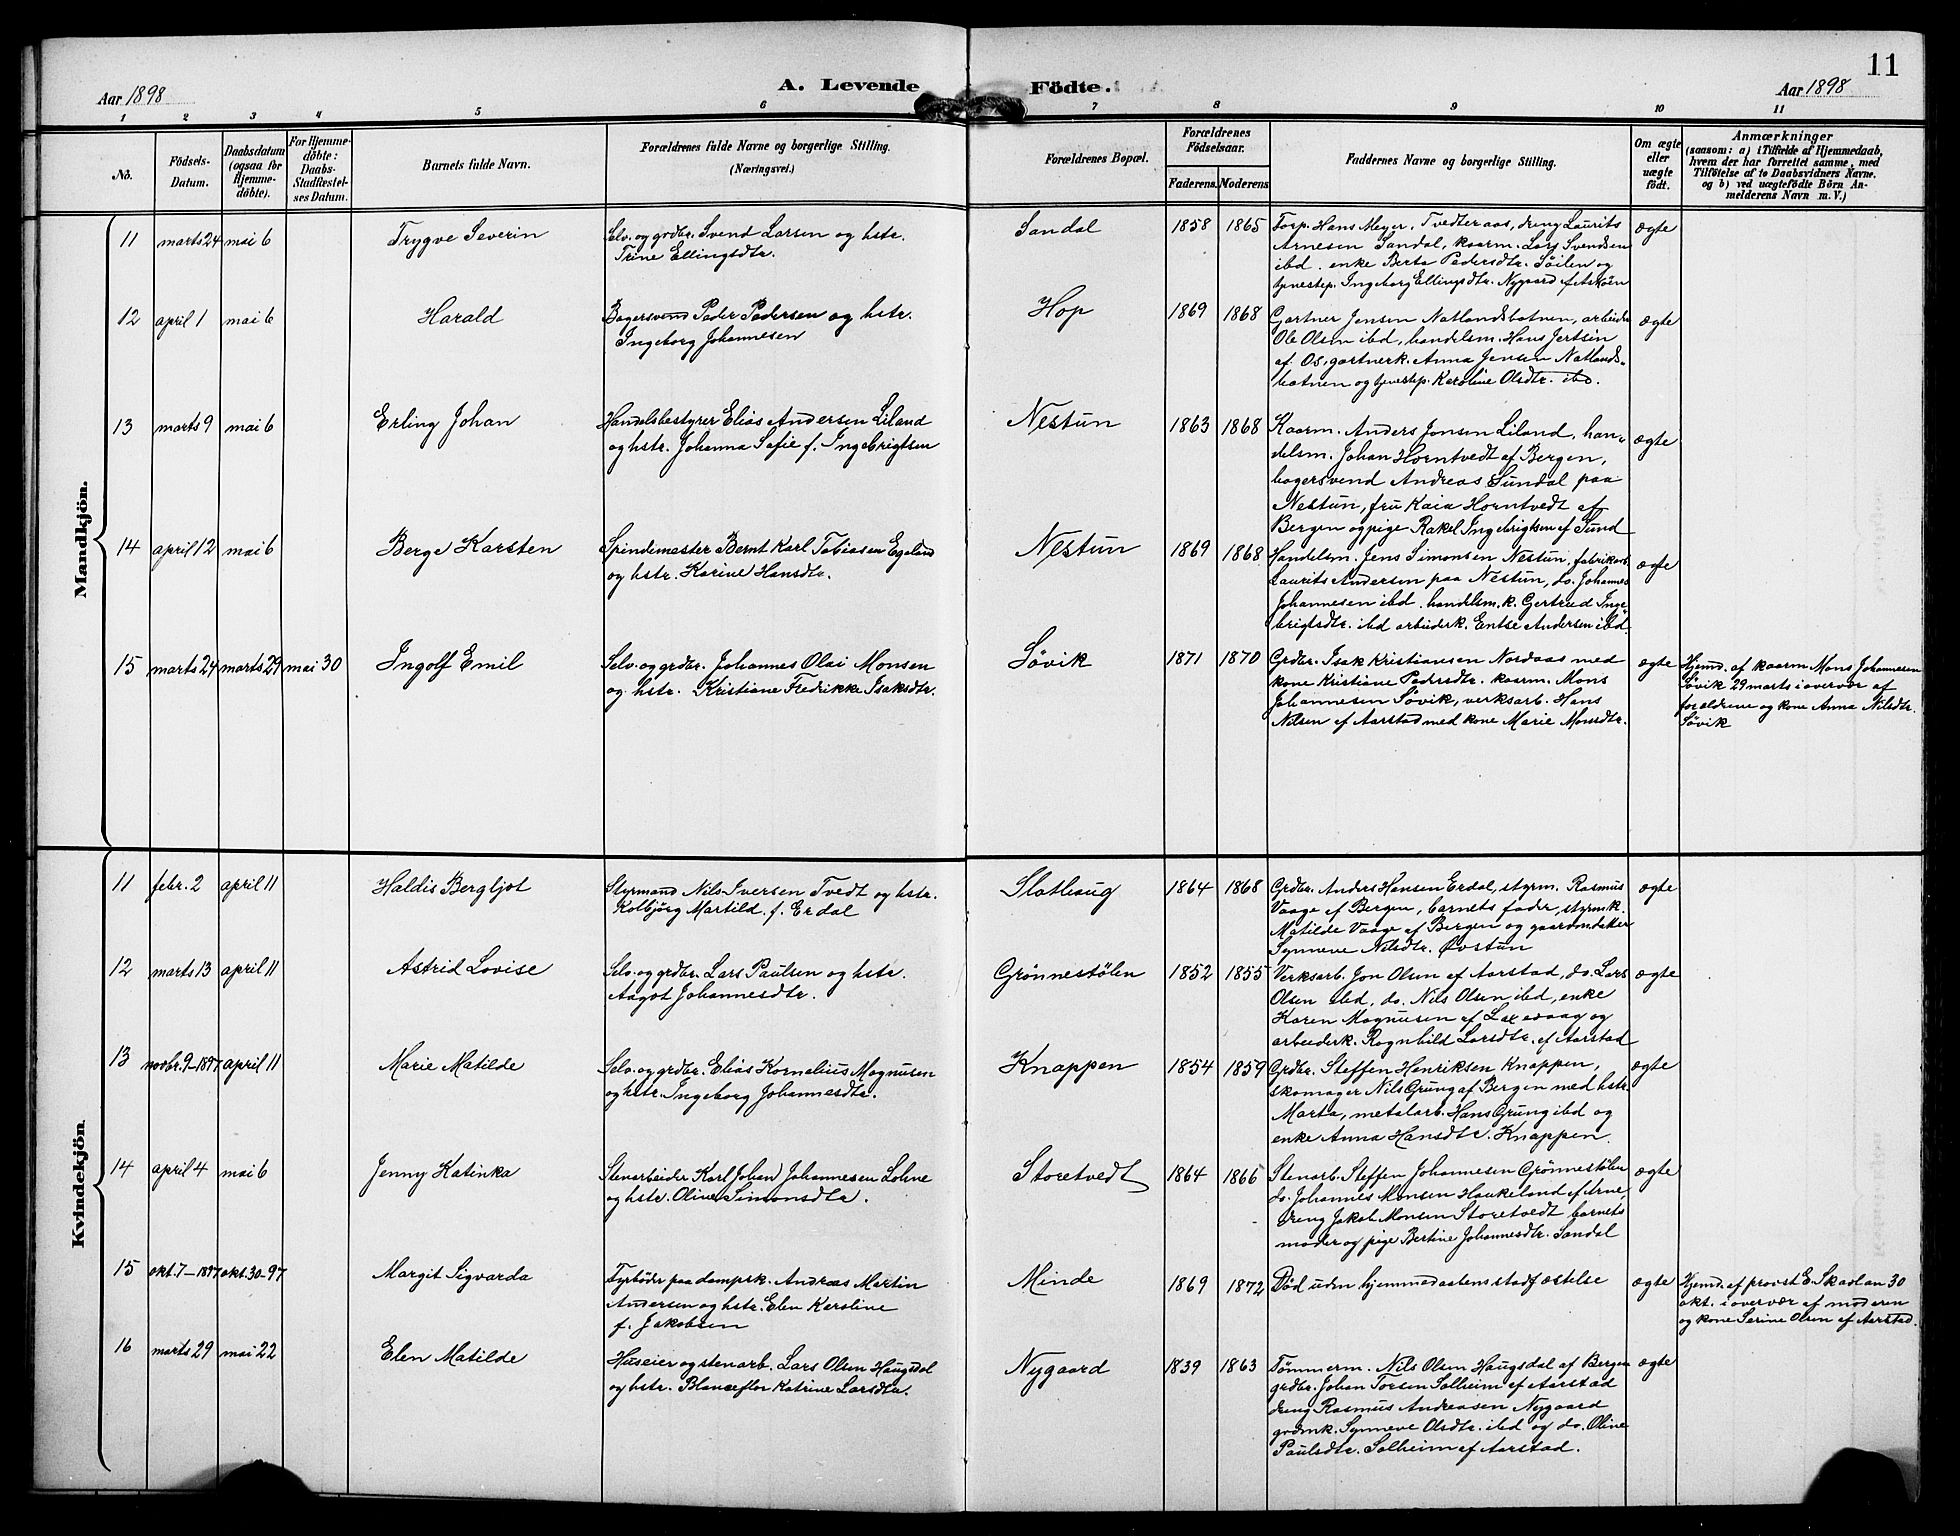 11
Aar 1898
A. Levende Födte.
Aar 1898
1 2 3 4 5 6 7 8 9 10 11
No.
Födsels-
Datum.
Daabsdatum
(ogsaa for
Hjemme-
döbte).
For Hjemme-
döbte:
Daabs-
Stadfæstel-
ses Datum.
Barnets fulde Navn.
Forældrenes fulde Navne og borgerlige Stilling.
(Næringsvei.)
Forældrenes Bopæl.
Forældrenes
Födselsaar.
Faderens. Moderens.
Faddernes Navne og borgerlige Stilling.
Om ægte
eller
uægte
födt.
Anmærkninger
(saasom: a) i Tilfælde af Hjemmedaab,
hvem der har forrettet samme, med
Tilföielse af to Daabsvidners Navne.
og b) ved uægtefödte Börn An-
melderens Navn m. V.)
Mandkjön.
11 marts 24 mai 6 Trygve Severin
Selv. og grdbr. Svend Larsen og hstr.
Trine Ellingsdtr.
Sandal 1858 1865
Forp. Hans Meyer, Tvedteraas, dreng Laurits
Arnesen Sandal, kaarm. Lars Svendsen
ibd. enke Berta Pedersdtr. Søilen og
tjenestep. Ingeborg Ellingsdtr. Nygaard af Askøen
ægte
12 april 1 mai 6 Harald
Bagersvend Peder Pedersen og hstr.
Ingeborg Johannesen
Hop 1869 1868
Gartner Jensen Natlandsbotnen, arbeider
Ole Olsen ibd, handelsm. Hans Jertsen
af Os, gartnerk. Anna Jensen Natlands-
botnen og tjenestep. Karoline Olsdtr. ibd.
ægte
13 marts 9 mai 6 Erling Johan
Handelsbestyrer Elias Andersen Liland
og hstr. Johanna Sofie f. Ingebrigtsen
Nestun 1863 1868
Kaarm. Anders Jonsen Liland, han-
delsm. Johan Horntvedt af Bergen,
bagersvend Andreas Sundal paa
Nestun, fru Kaia Horntvedt af
Bergen og pige Rakel Ingebrigtsen af Sund
ægte
14 april 12 mai 6 Berge Karsten
Spindemester Bernt Karl Tobiasen Egeland
og hstr. Karine Hansdtr.
Nestun 1869 1868
Handelsm. Jens Simonsen Nestun, fabrikarb.
Laurits Andersen paa Nestun, do. Johannes
Johannesen ibd. handelsm. k. Gertrud Inge-
brigtsdtr. ibd arbeiderk. Entse Andersen ibd.
ægte
15 marts 24 marts 29 mai 30 Ingolf Emil
Selv. og grdbr. Johannes Olai Monsen
og hstr. Kristiane Fredrikke Isaksdtr.
Søvik 1871 1870
Grdbr. Isak Kristiansen Nordaas med
kone Kristiane Pedersdtr. kaarm. Mons
Johannesen Søvik, verksarb. Hans
Nilsen af Aarstad med kone Marie Monsdtr.
ægte
Hjemd. af kaarm Mons Johannesen
Søvik 29 marts i overvær af
forældrene og kone Anna Nilsdtr.
Søvik
Kvindekjön.
11 febr. 2 april 11 Haldis Bergljot
Styrmand Nils Iversen Tvedt og hstr.
Kolbjörg Martild. f. Erdal
Slathaug 1864 1868
Grdbr. Anders Hansen Erdal, styrm. Rasmus
Vaage af Bergen, barnets fader, styrm.k.
Matilde Vaage af Bergen og gaardmdatter
Synneve Nilsdtr. Øvstun
ægte
12 marts 13 april 11 Astrid Lovise
Selv. og grdbr. Lars Paulsen og hstr.
Aagot Johannesdtr.
Grønnestølen 1852 1855
Verksarb. Jon Olsen af Aarstad, do. Lars
Olsen ibd, do. Nils Olsen ibd, enke
Karen Magnusen af Laxevaag og
arbeiderk. Ragnhild Larsdtr. af Aarstad
ægte
13 novbr. 9-1897 april 11 Marie Matilde
Selv. og grdbr. Elias Kornelius Magnusen
og hstr. Ingeborg Johannesdtr.
Knappen 1854 1859
Grdbr. Steffen Henriksen Knappen,
skomager Nils Grung af Bergen med hstr.
Marta, metalarb. Hans Grung ibd og
enke Anna Hansdtr. Knappen.
ægte
14 april 4 mai 6 Jenny Katinka
Stenarbeider Karl Johan Johannesen Lohne
og hstr. Oline Simonsdtr.
Storetvedt 1864 1866
Stenarb. Steffen Johannesen Grønnestølen
do. Johannes Monsen Haukeland af Arne,
dreng Jakob Monsen Storetvedt barnets
moder og pige Bertine Johannesdtr. Sandal
ægte
15 okt. 7-1897 okt. 30-97 Margit Sigvarda
Fyrbøder paa dampsk. Andreas Martin
Andersen og hstr. Elen Karoline
f. Jakobsen
Minde 1869 1872
Död uden hjemmedaabens stadfæstelse
ægte
Hjemd. af provst E. Skavlan 30
okt. i overvær af moderen
og kone Serine Olsen af Aarstad.
16 marts 29 mai 22 Elen Matilde
Huseier og stenarb. Lars Olsen Haugsdal
og hstr. Blanceflor Katrine Larsdtr.
Nygaard 1839 1863
Tømmerm. Nils Olsen Haugsdal af Bergen
grdbr. Johan Torsen Solheim af Aarstad
dreng Rasmus Andreasen Nygaard
grdmk. Synneve Olsdtr. ibd og do. Oline
Paulsdtr. Solheim af Aarstad.
ægte